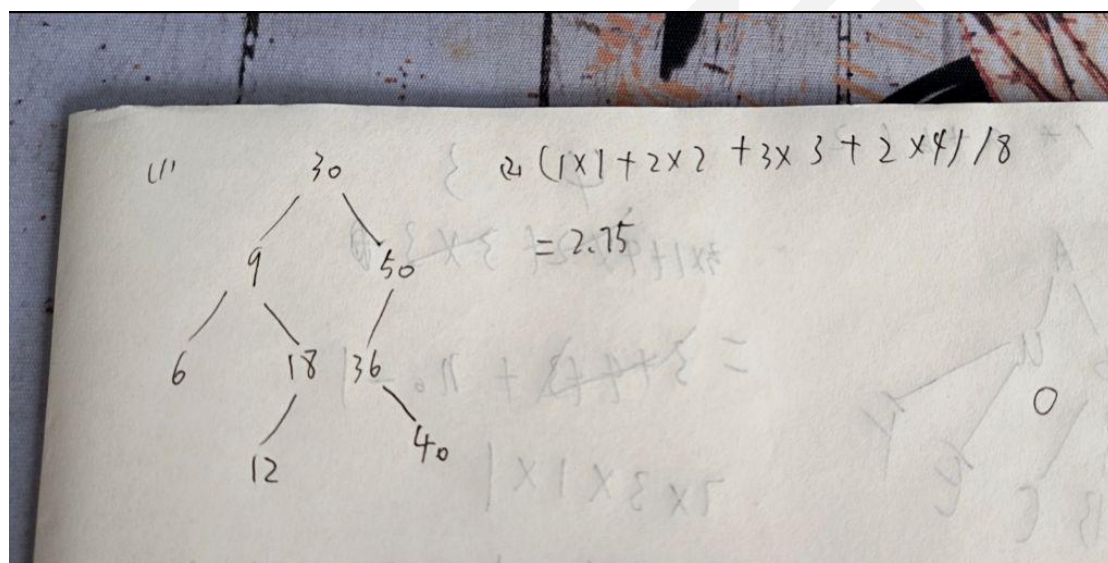 (1)
30
9 50
6 18 36
12 40
(2) (1×1+2×2+3×3+2×4)/8
=2.75